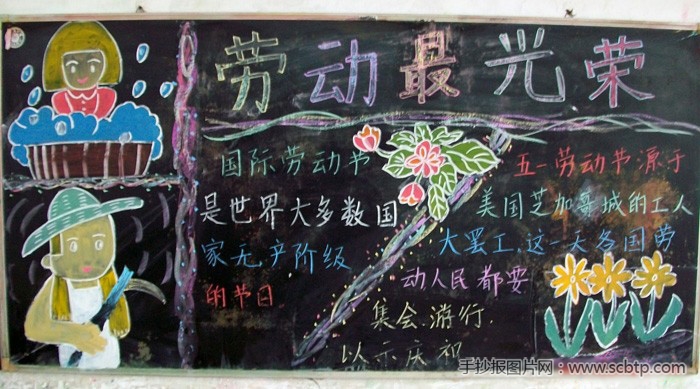 劳动最光荣
国际劳动节
是世界大多数国
家无产阶级
的节日
五一劳动节源于
美国芝加哥城的工人
大罢工,这一天各国劳
动人民都要
集会,游行,
以示庆祝
手抄报图片网:www.scbtp.com